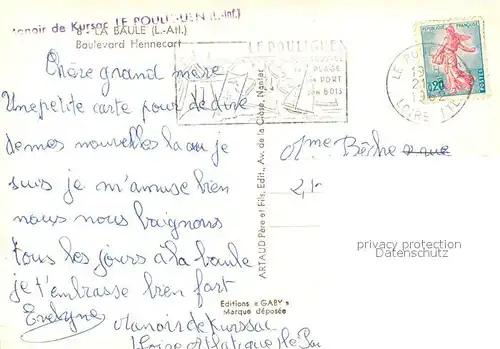 Manoir de Kursac LE POULIGUEN (L.-Inf.)
8. LA BAULE (L.-Atl.)
Boulevard Hennecart
LE POULIGUEN
PLAGE
PORT
BOIS
LE POU
LOIRE
0,20
POSTES
Chère grand mère
Une petite carte pour te dire
demes nouvelles la ou je
suis je m'amuse bien
nous nous baignons
tous les jours a la baule
je t'embrasse bien fort
Evelyne
Manoir de Kurssac
Loire Atlantique le Pou
Mme Bèche
ARTAUD Père et Fils, Edit., Av. de la Close, Nantes
Editions « GABY »
Marque déposée
privacy protection
Datenschutz